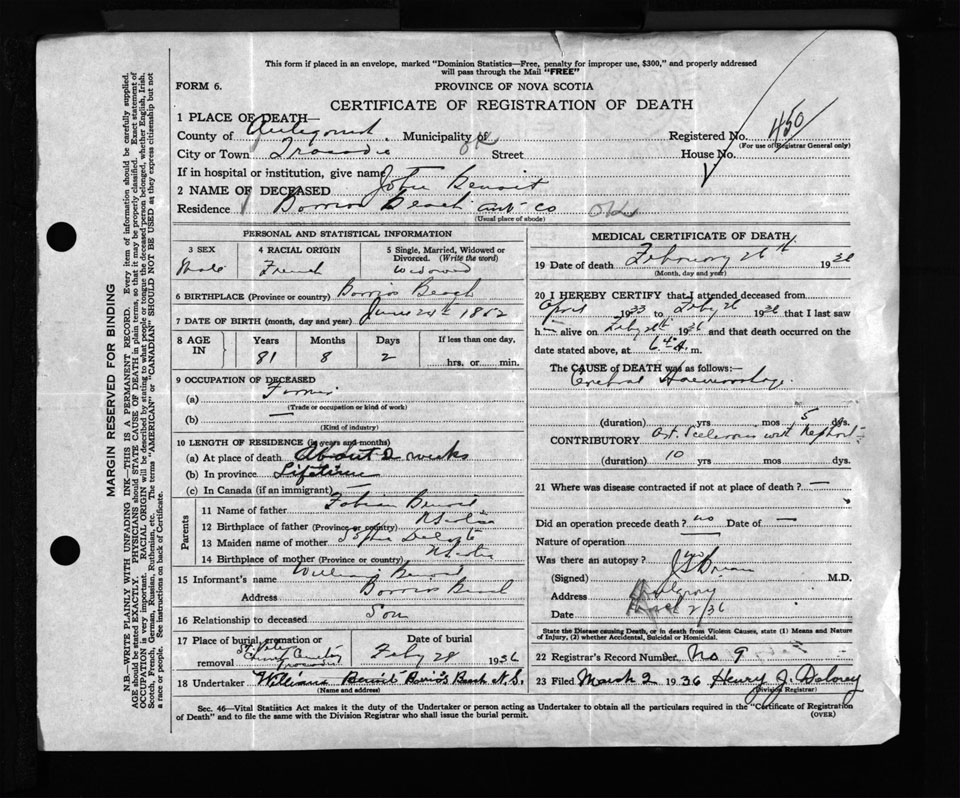 This form if placed in an envelope, marked "Dominion Statistics—Free, penalty for improper use, $300," and properly addressed
will pass through the Mail "FREE"
FORM 6. PROVINCE OF NOVA SCOTIA
CERTIFICATE OF REGISTRATION OF DEATH
1 PLACE OF DEATH—
County of Antigonish Municipality of Registered No. 450
(For use of Registrar General only)
City or Town Tracadie Street House No.
If in hospital or institution, give name
2 NAME OF DECEASED John Benoit
Residence Beach Ant Co
(Usual place of abode)
PERSONAL AND STATISTICAL INFORMATION
3 SEX 4 RACIAL ORIGIN 5 Single, Married, Widowed or Divorced. (Write the word)
Male French Widowed
6 BIRTHPLACE (Province or country) Beach
7 DATE OF BIRTH (month, day and year) June
8 AGE IN Years Months Days If less than one day,
81 8 2 hrs. or min.
9 OCCUPATION OF DECEASED
(a) Farmer
(Trade or occupation or kind of work)
(b)
(Kind of industry)
10 LENGTH OF RESIDENCE (in years and months)
(a) At place of death About 2 weeks
(b) In province Lifetime
(c) In Canada (if an immigrant) —
Parents
11 Name of father Benoit
12 Birthplace of father (Province or country) N Scotia
13 Maiden name of mother Sophie
14 Birthplace of mother (Province or country) N Scotia
15 Informant's name William Benoit
Address
16 Relationship to deceased Son
17 Place of burial, cremation or removal Date of burial
Tracadie Feby 28 1936
18 Undertaker William Benoit Beach N.S.
(Name and address)
MEDICAL CERTIFICATE OF DEATH
19 Date of death February 26th 1936
(Month, day and year)
20 I HEREBY CERTIFY that I attended deceased from
April 1933 to Feby 26 1936 that I last saw
h alive on Feby 1936 and that death occurred on the
date stated above, at m.
The CAUSE of DEATH was as follows:—
Cerebral Haemorrhage
(duration) yrs. mos. 5 dys.
CONTRIBUTORY Art. Sclerosis with
(duration) 10 yrs mos. dys.
21 Where was disease contracted if not at place of death? —
Did an operation precede death? no Date of —
Nature of operation
Was there an autopsy? no
(Signed) M.D.
Address
Date
State the Disease causing Death, or in death from Violent Causes, state (1) Means and Nature
of Injury, (2) whether Accidental, Suicidal or Homicidal.
22 Registrar's Record Number No 9
23 Filed March 2 1936 Henry J. Delorey
(Division Registrar)
Sec. 46—Vital Statistics Act makes it the duty of the Undertaker or person acting as Undertaker to obtain all the particulars required in the "Certificate of Registration
of Death" and to file the same with the Division Registrar who shall issue the burial permit. (OVER)
MARGIN RESERVED FOR BINDING
N.B.—WRITE PLAINLY WITH UNFADING INK—THIS IS A PERMANENT RECORD. Every item of information should be carefully supplied.
AGE should be stated EXACTLY. PHYSICIANS should STATE CAUSE OF DEATH in plain terms, so that it may be properly classified. Exact statement of
OCCUPATION is very important. RACIAL ORIGIN will be described by stating to what people or tongue the deceased person belonged, whether English, Irish,
Scotch, French, German, Russian, Ruthenian, etc. The terms "AMERICAN" or "CANADIAN" SHOULD NOT BE USED as they express citizenship but not
a race or people. See instructions on back of Certificate.